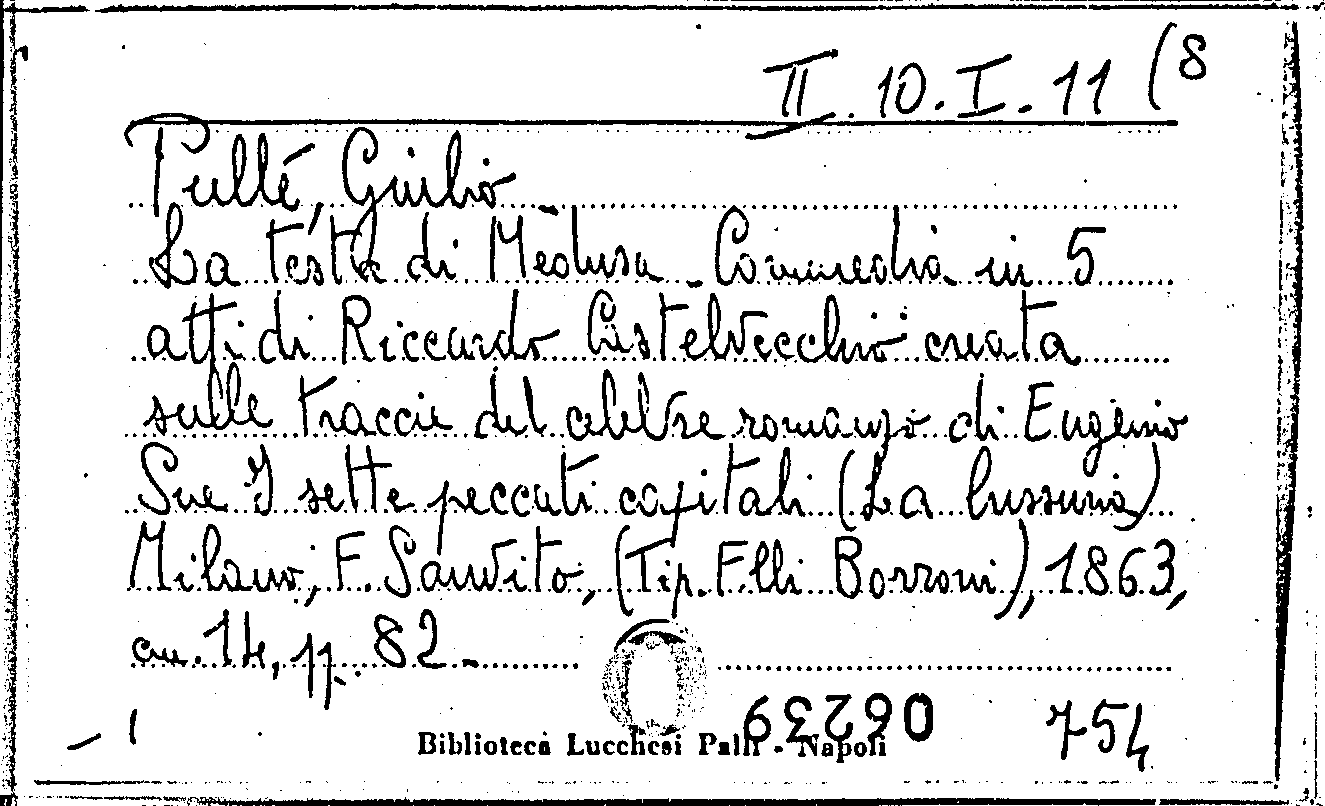 II. 10. I. 11 (8
Pullé, Giulio
La testa di Medusa - Commedia in 5
atti di Riccardo Castelvecchio creata
sulle traccie del celebre romanzo di Eugenio
Sue I sette peccati capitali (La lussuria)
Milano, F. Sanvito, (Tip. F.lli Borroni), 1863,
cm. 14, pp. 82 -
06239 754
Biblioteca Lucchesi Palli - Napoli